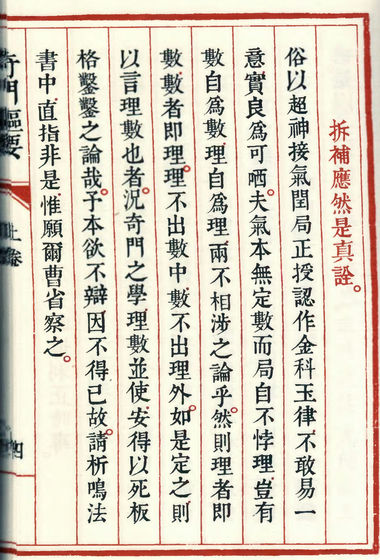 拆補應然是真詮。
俗以超神接氣閏局正授認作金科玉律不敢易一
意實良爲可哂。夫氣本無定數而局自不悖理豈有
數自爲數理自爲理兩不相涉之論乎。然則理者即
數數者即理。理不出數中數不出理外。如是定之則
以言理數也者。況奇門之學理數並使安得以死板
格鑿鑿之論哉。予本欲不辯因不得已故。請析鳴法
書中直指非是惟願爾曹省察之。
奇門樞要
上卷
四